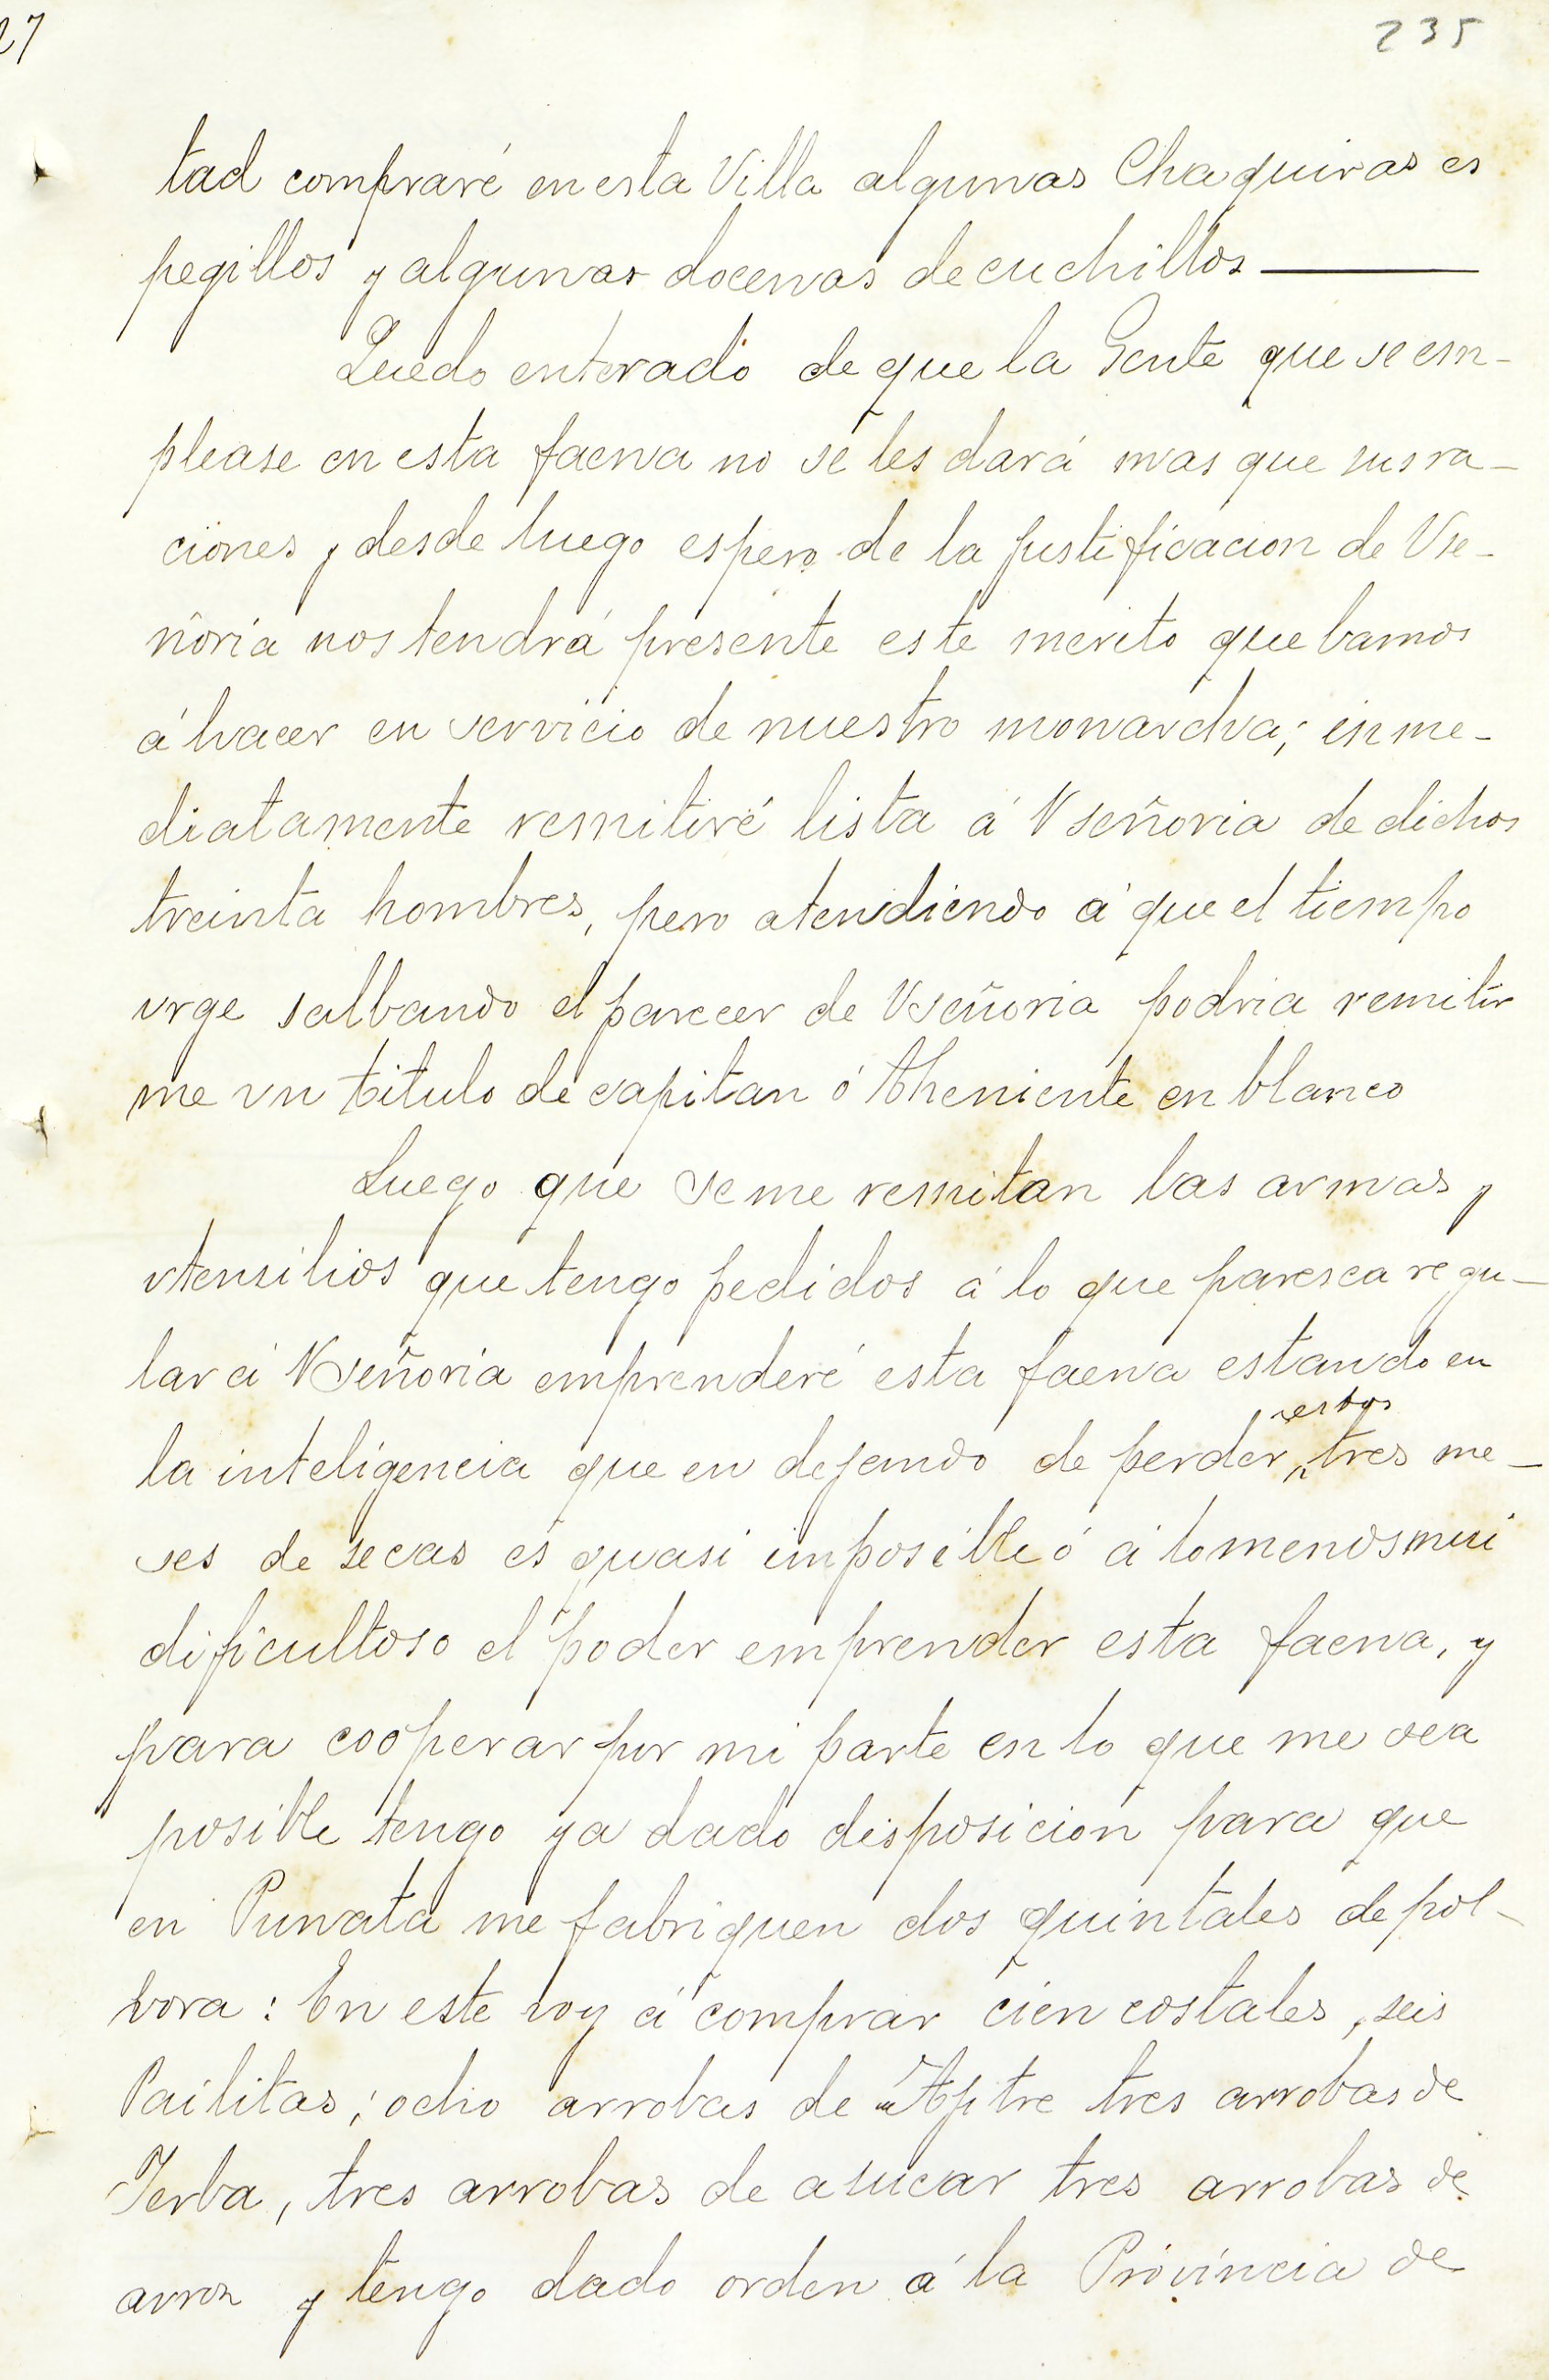 27
235
tad compraré en esta Villa algunas Chaquiras es
pegillos y algunas docenas de cuchillos
Quedo enterado de que la Gente que se em-
please en esta faena no se les dará mas que sus ra-
ciones y desde luego espero de la justificacion de Vse-
ñoria nos tendrá presente este merito que bamos
á hacer en servicio de nuestro monarcha; inme-
diatamente remitiré lista á Vseñoria de dichos
treinta hombres, pero atendiendo á que el tiempo
vrge salbando el parecer de Vseñoria podria remitir
me vn titulo de capitan ó Theniente en blanco
Luego que se me remitan las armas y
vtensilios que tengo pedidos á lo que paresca regu-
lar á Vseñoria emprenderé esta faena estando en
estos
la inteligencia que en dejando de perder tres me-
ses de secas es quasi imposible ó á lo menos mui
dificultoso el poder emprender esta faena, y
para cooperar por mi parte en lo que me sea
posible tengo ya dado disposicion para que
en Punata me fabriquen dos quintales de pol-
vora: En este voy á comprar cien costales, seis
Pailitas; ocho arrobas de tres arrobas de
Yerba, tres arrobas de asucar tres arrobas de
arroz y tengo dado orden á la Provincia de